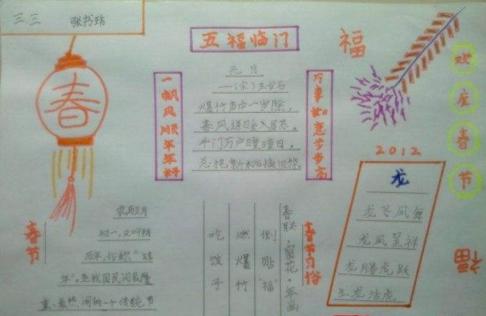 三三
张书培
春
五福临门
福
欢庆春节
一帆风顺年年好
万事如意步步高
元日
——(宋)王安石
爆竹声中一岁除,
春风送暖入屠苏。
千门万户曈曈日,
总把新桃换旧符。
2012
龙
龙飞凤舞
龙凤呈祥
龙腾虎跃
生龙活虎
福
春节
春节习俗
春联·窗花·年画
倒贴“福”
燃爆竹
吃饺子
农历正月
初一,又叫阴
历年,俗称“过
年”。是我国民间最隆
重、最热闹的一个传统节